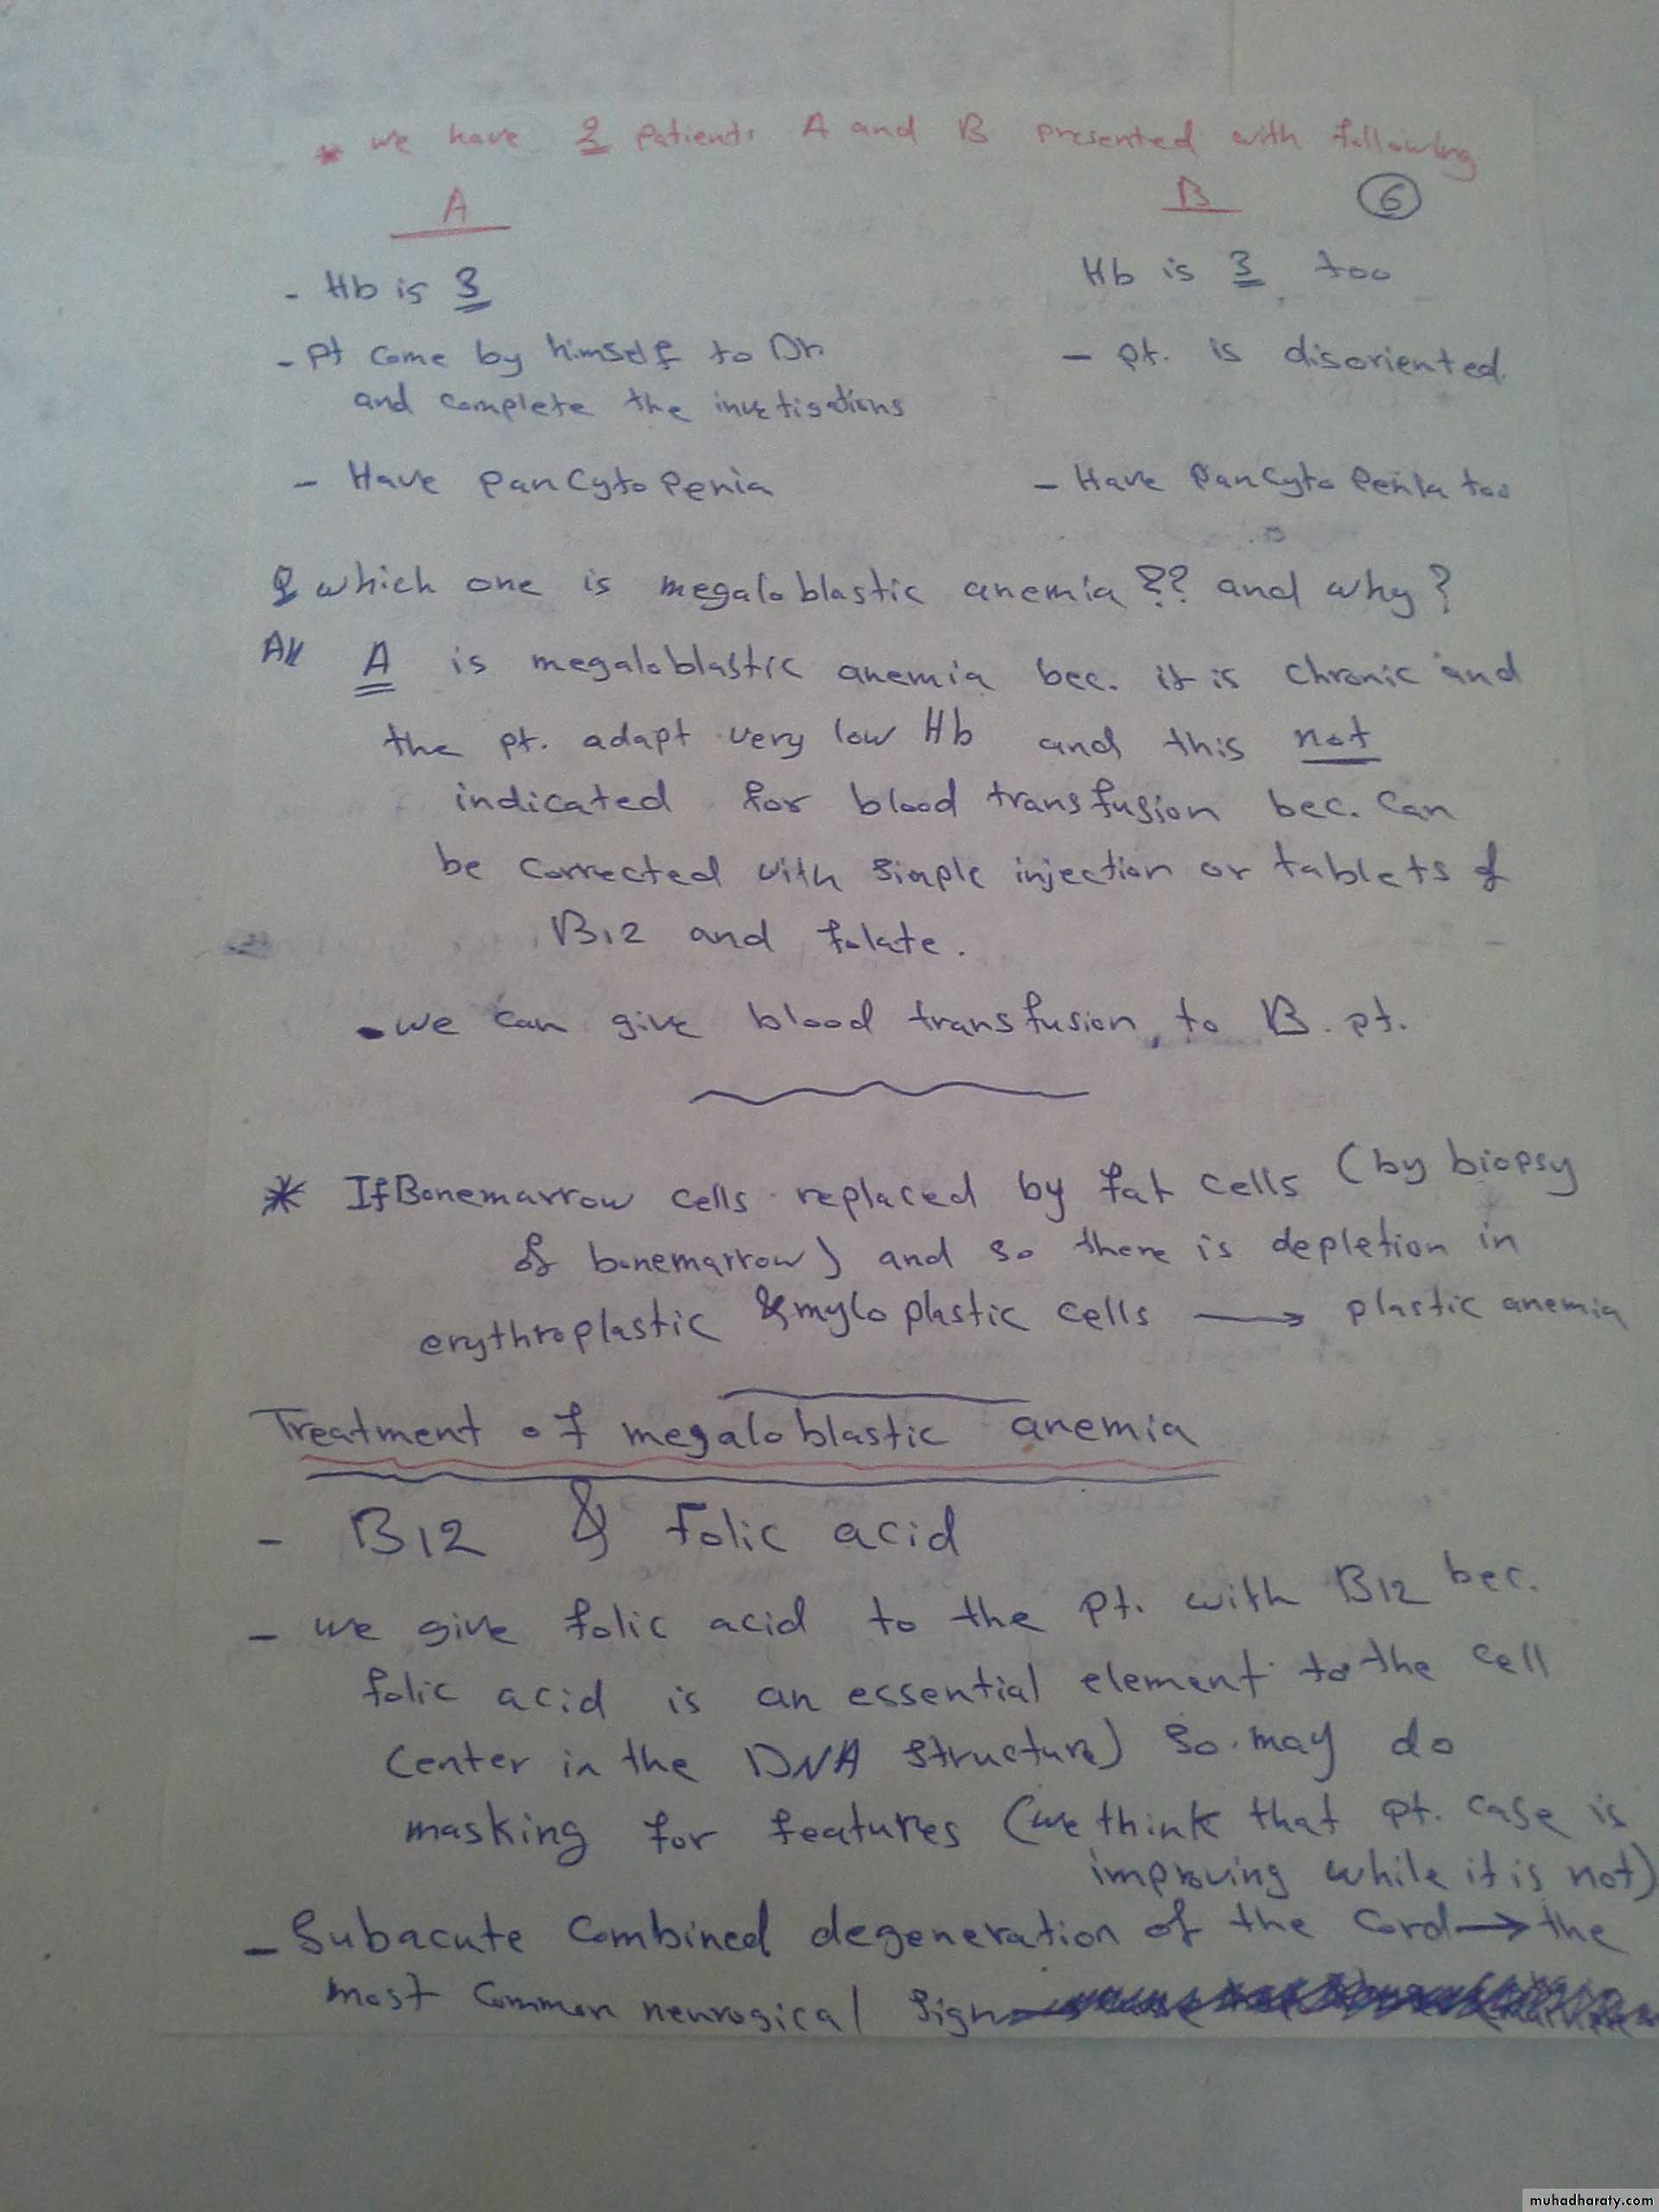 * we have 2 patients A and B presented with following
A B 6
- Hb is 3 Hb is 3 too
- Pt come by himself to Dr - pt. is disoriented.
and complete the invetigations
- Have Pancytopenia - Have Pancytopenia too
Q which one is megaloblastic anemia ?? and why?
A is megaloblastic anemia bec. it is chronic and
the pt. adapt very low Hb and this not
indicated for blood transfusion bec. can
be corrected with simple injection or tablets of
B12 and folate.
• we can give blood transfusion, to B. pt.
* If Bonemarrow cells replaced by fat cells (by biopsy
of bonemarrow) and so there is depletion in
erythroplastic & myloplastic cells → plastic anemia
Treatment of megaloblastic anemia
- B12 & Folic acid
- we give folic acid to the pt. with B12 bec.
folic acid is an essential element to the cell
center in the DNA structure) so may do
masking for features (we think that pt. case is
improving while it is not)
- Subacute Combined degeneration of the cord → the
most common neurogical sign
muhadharaty.com